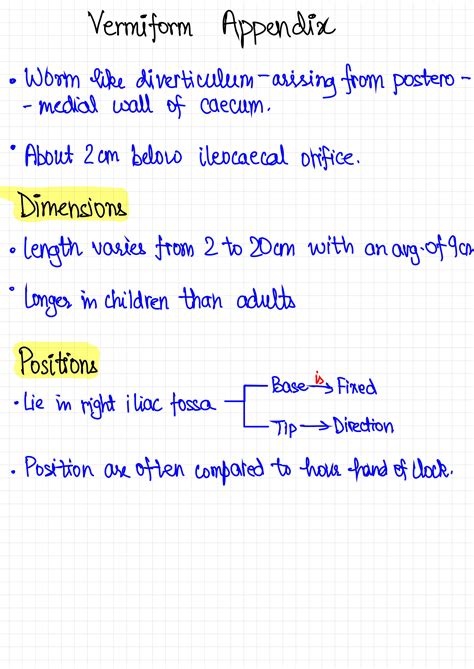 Vermiform Appendix
• Worm like diverticulum - arising from postero -
- medial wall of caecum.
• About 2cm below ileocaecal orifice.
Dimensions
• Length varies from 2 to 20cm with an avg. of 9cm
• Longer in children than adults
Positions
• Lie in right iliac fossa
Base is → Fixed
Tip → Direction
• Position are often compared to hour hand of clock.